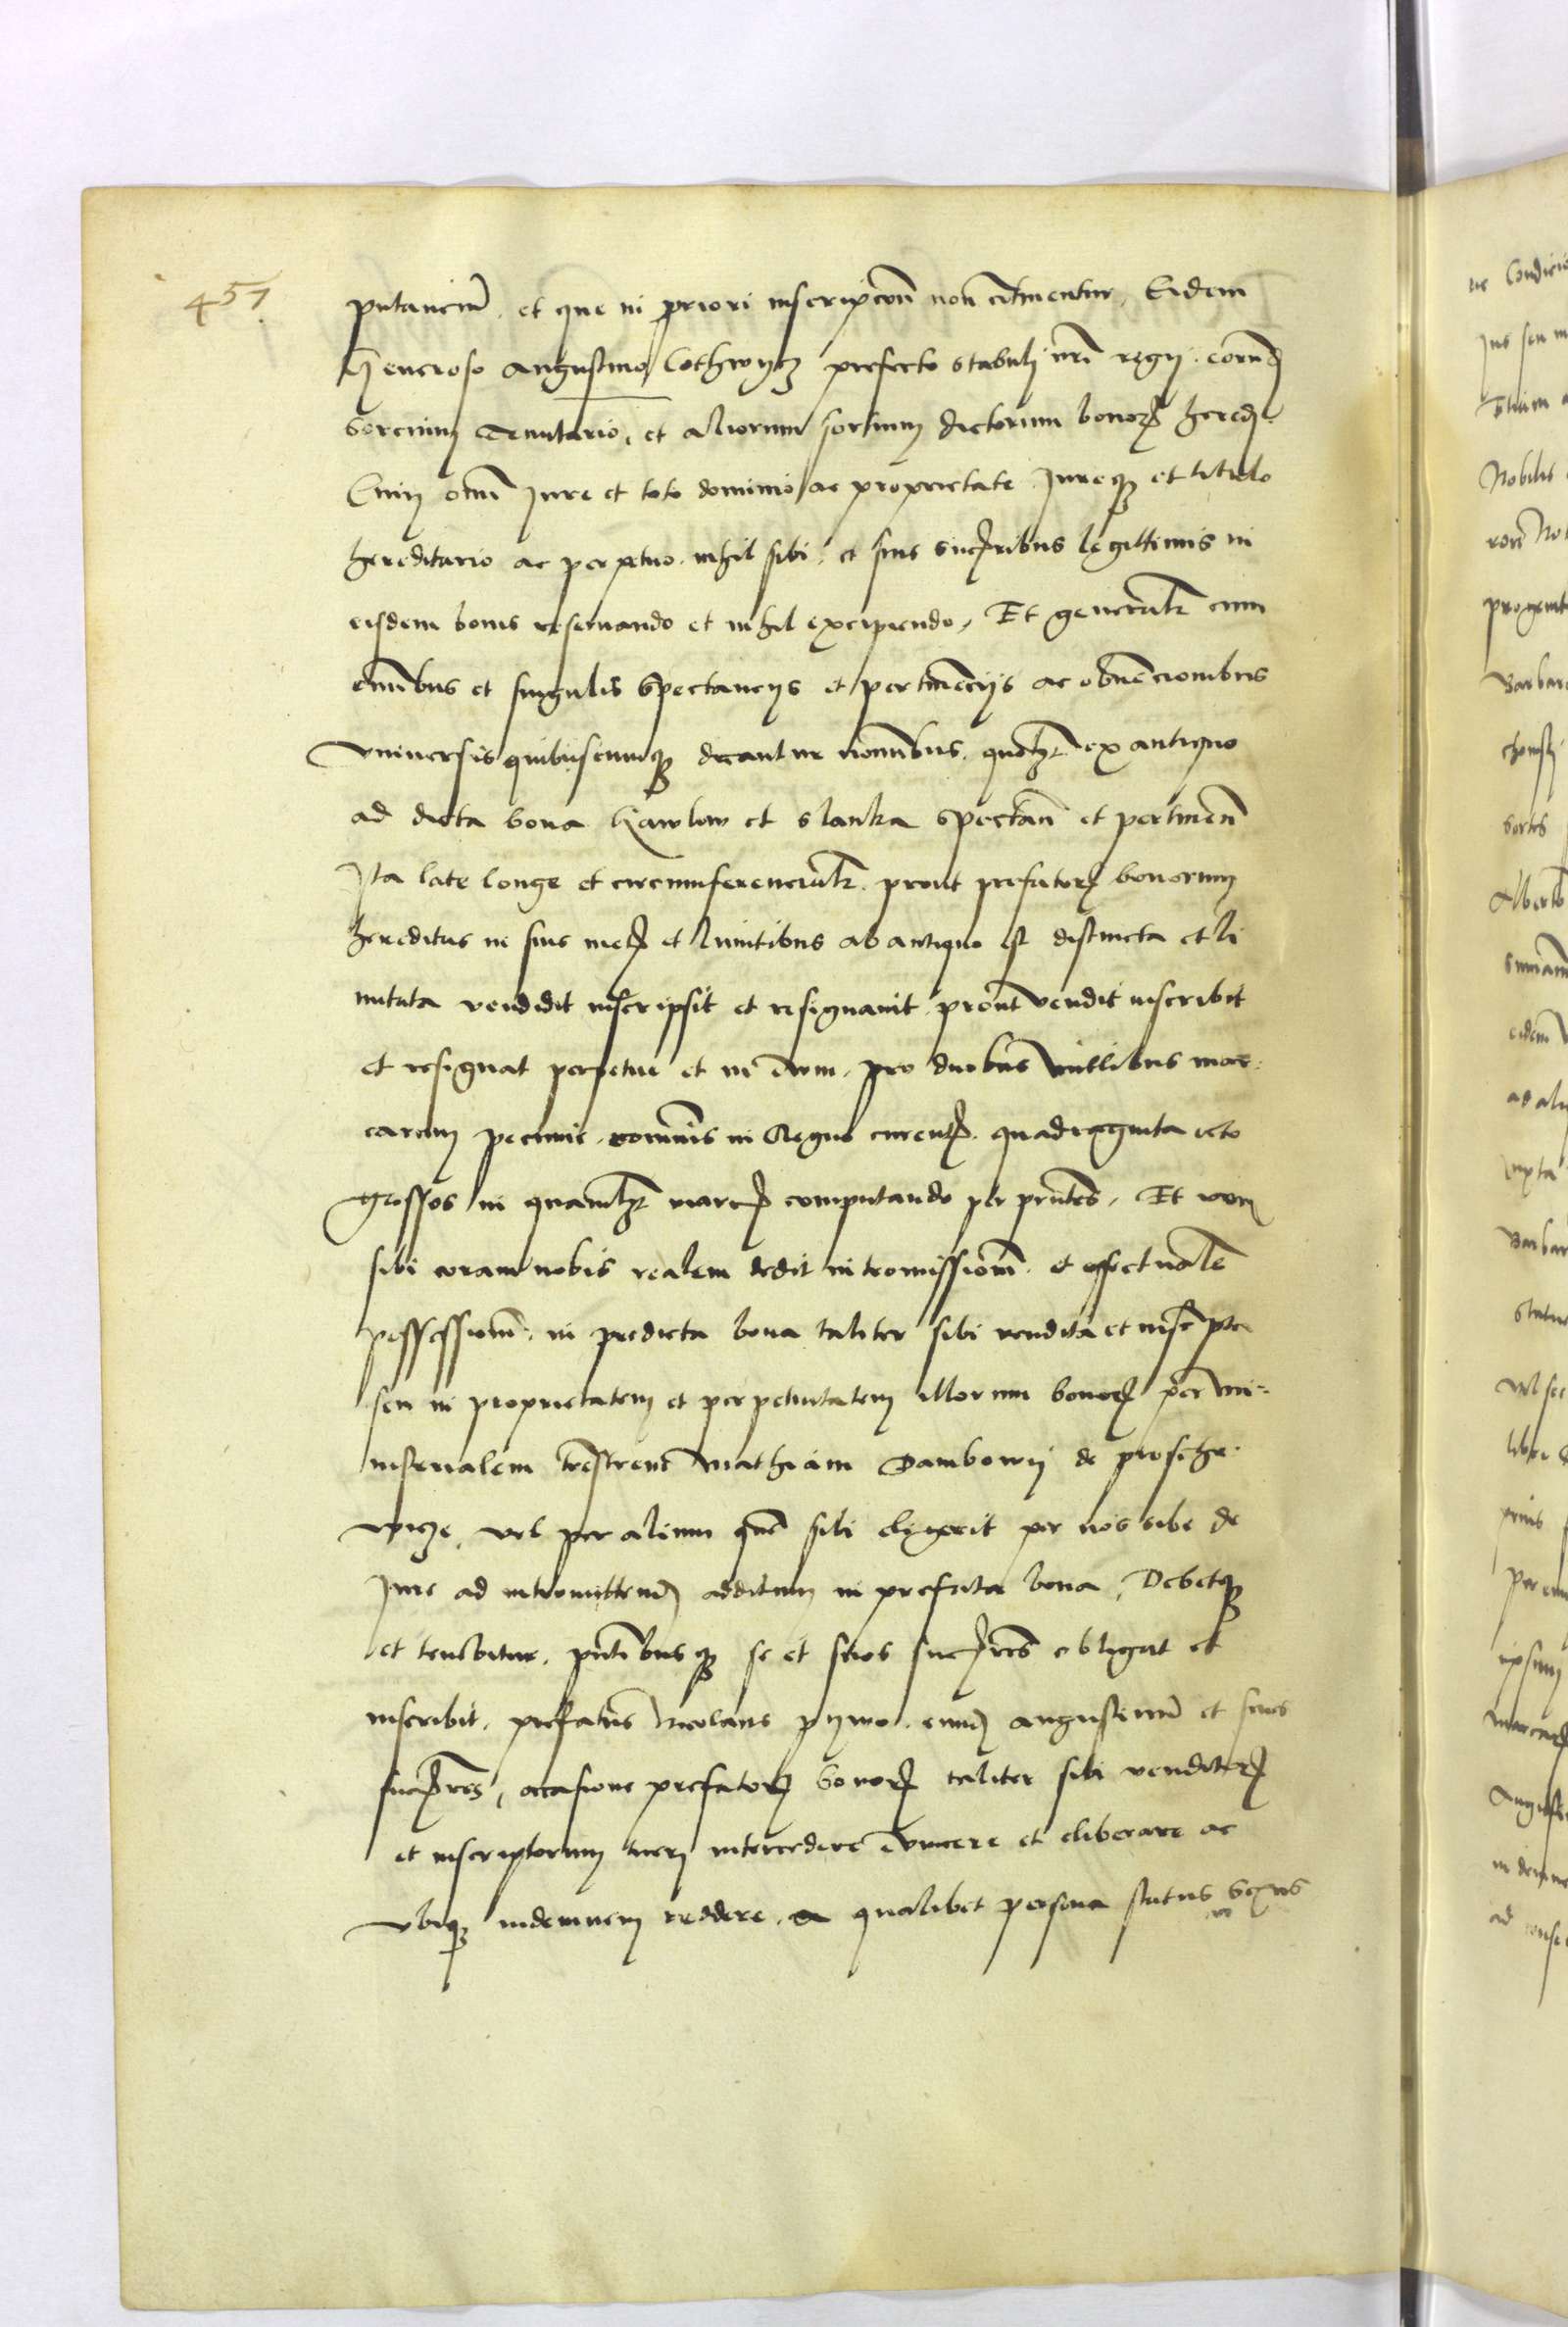 451
putaneum et que in priori inscripcion non ctinentur, Eidem
Generoso Augustino Cothwycz prefecto stabuli nri regii eorund
sorcium Tenutario, et aliorum sortium dictorum bonor hered
Cum omi Jure et toto dominio ac proprietate Jureq et titulo
hereditario ac perpetuo nihil sibi et suis successoribus legittimis in
eisdem bonis reseruando et nihil excipiendo, Et generalr cum
omibus et singulis spectancys et pertinecys ac obuencionibus
vniuersis quibuscumq dicantur nominibus quolz ex antiquo
ad dicta bona Kawlow et Slanka spectan et pertinen
Ita late longe et circumferencialr prout prefator bonorum
hereditas in suis metis et limitibus ab antiquo est distincta et li
mitata vendidit inscripsit et resignauit prout vendit inscribit
et resignat perpetue et in euum pro duobus millibus mar
carum pecunie comunis in Regno curentis quadraginta octo
grossos in quamlz marcam computando per pntes, Et iam
sibi coram nobis realem dedit intromissionem et effectualem
possessionem in predicta bona taliter sibi vendita et inscripta
seu in proprietatem et perpetuitatem illorum bonor per mi=
nisterialem trestrem Mathiam Dambowy de prosche
wicze, vel per alium quem sibi eligerit per nos sibe de
Jure ad intromittend additum in prefata bona, Debetq
et tenebitur, pntibusq se et suos succres obligat et
inscribit prefatus Nicolaus pywo eund augustinum et suos
succres, occasione prefator bonor taliter sibi venditor
et inscriptorum tueri intercedere euincere et eliberare ac
vbiq indemnem reddere a qualibet persona status sexus